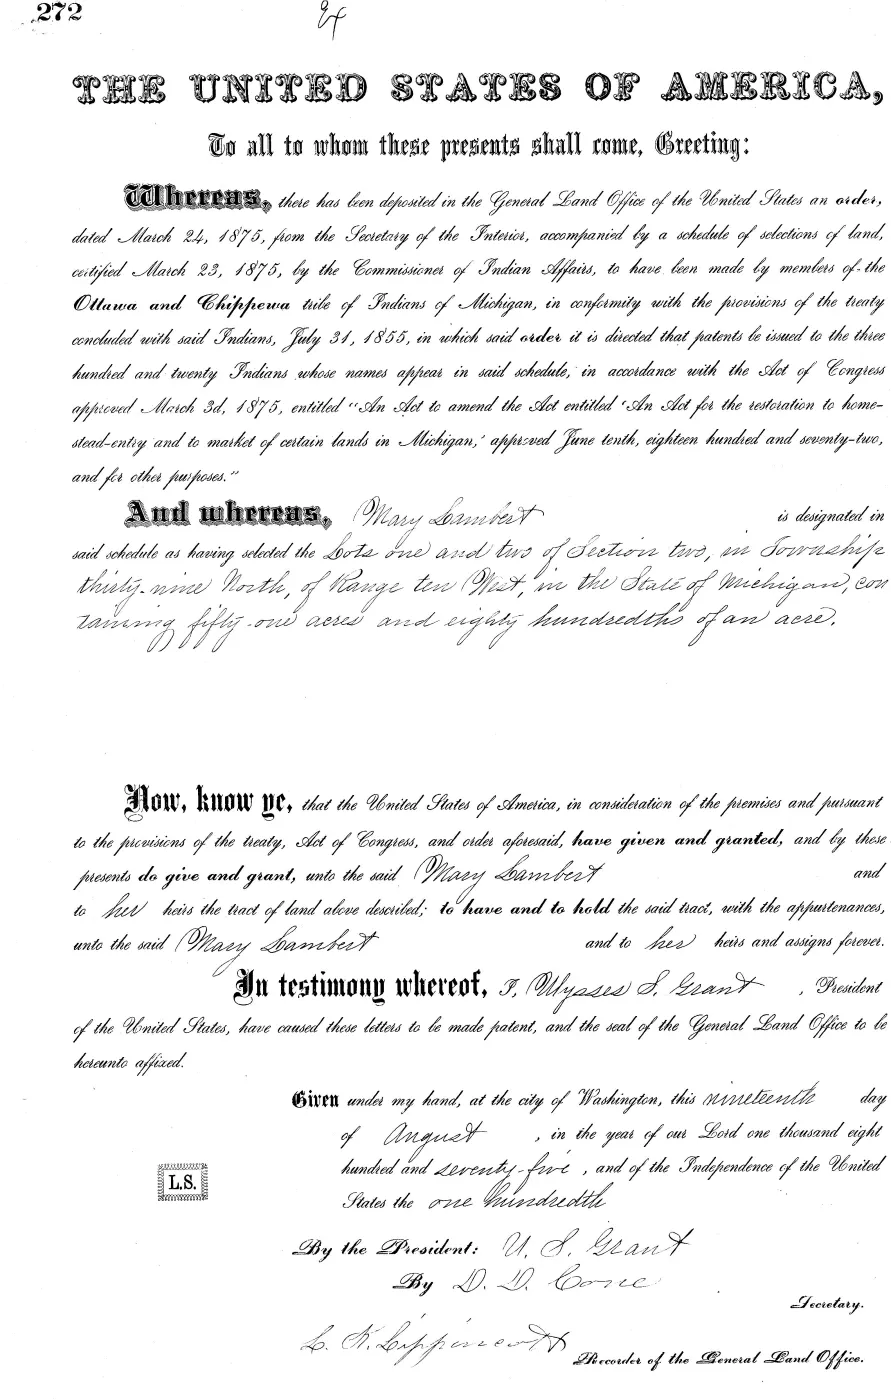 272
Ex
THE UNITED STATES OF AMERICA,
To all to whom these presents shall come, Greeting:
Whereas, there has been deposited in the General Land Office of the United States an order,
dated March 24, 1875, from the Secretary of the Interior, accompanied by a schedule of selections of land,
certified March 23, 1875, by the Commissioner of Indian Affairs, to have been made by members of the
Ottawa and Chippewa tribe of Indians of Michigan, in conformity with the provisions of the treaty
concluded with said Indians, July 31, 1855, in which said order it is directed that patents be issued to the three
hundred and twenty Indians whose names appear in said schedule, in accordance with the Act of Congress
approved March 3d, 1875, entitled "An Act to amend the Act entitled 'An Act for the restoration to home-
stead-entry and to market of certain lands in Michigan,' approved June tenth, eighteen hundred and seventy-two,
and for other purposes."
And whereas, Mary Lambert is designated in
said schedule as having selected the Lots one and two of Section two, in Township
thirty-nine North, of Range ten West, in the State of Michigan, con
taining fifty-one acres and eighty hundredths of an acre.
Now, know ye, that the United States of America, in consideration of the premises and pursuant
to the provisions of the treaty, Act of Congress, and order aforesaid, have given and granted, and by these
presents do give and grant, unto the said Mary Lambert and
to her heirs the tract of land above described; to have and to hold the said tract, with the appurtenances,
unto the said Mary Lambert and to her heirs and assigns forever.
In testimony whereof, I, Ulysses S. Grant, President
of the United States, have caused these letters to be made patent, and the seal of the General Land Office to be
hereunto affixed.
Given under my hand, at the city of Washington, this nineteenth day
of August, in the year of our Lord one thousand eight
hundred and seventy-five, and of the Independence of the United
States the one hundredth
L.S.
By the President: U. S. Grant
By D. D. Cone
Secretary.
L. K. Lippincott
Recorder of the General Land Office.